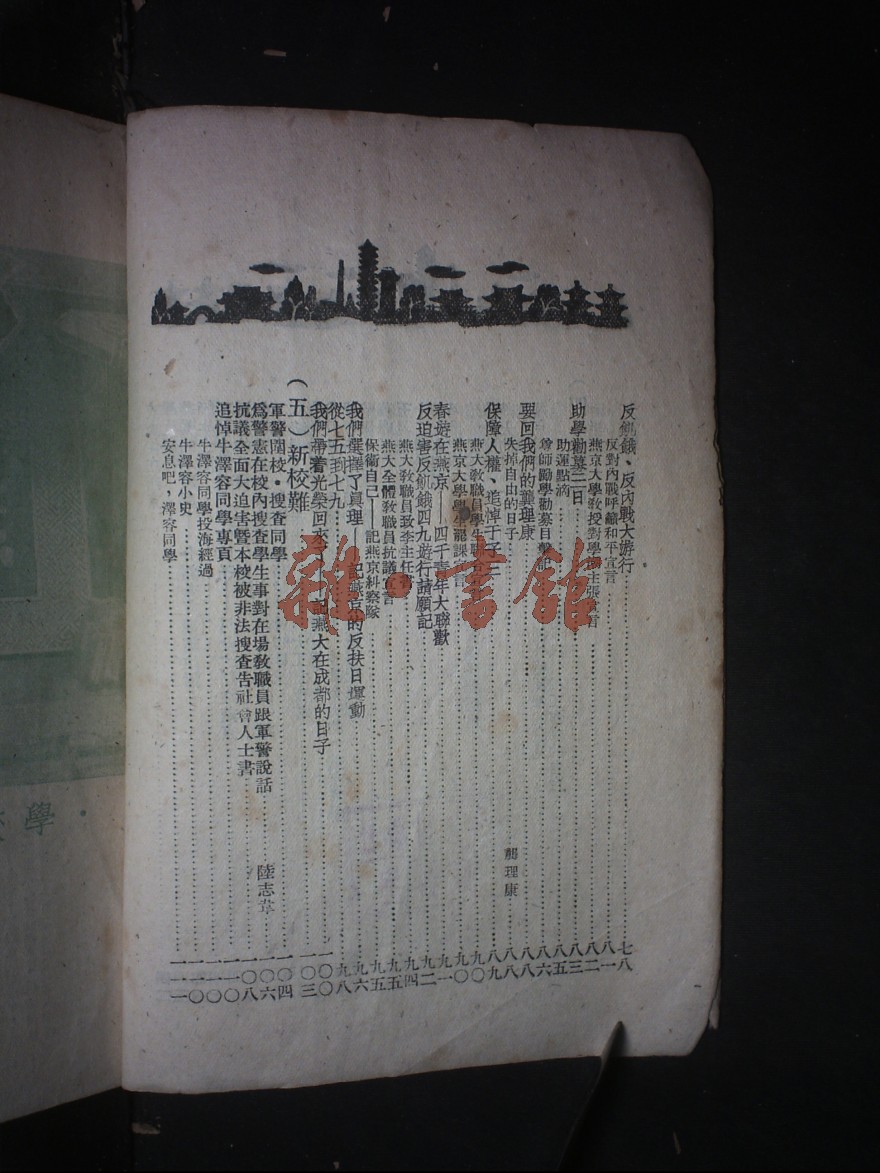 反飢餓、反內戰大游行……七八
反對內戰呼籲和平宣言……八一
燕京大學教授對學潮主張宣言……八二
助學勸募二日……八三
助運點滴……八五
尊師勵學勸募目擊記……八六
要回我們的龔理康……八八
失掉自由的日子……龔理康 八八
保障人權、追悼于子三……八八
燕大教職員學生聯合……九〇
燕京大學學生罷課宣言……九〇
春遊在燕京——四千青年大聯歡……九一
反迫害反飢餓四九遊行請願記……九二
燕大教職員致李主任書……九四
燕大全體教職員抗議宣言……九五
保衛自己——記燕京糾察隊……九五
我們選擇了眞理——記燕京的反扶日運動……九六
從七五到七九……九八
我們帶着光榮回來了——記燕大在成都的日子……一〇〇
（五）新校難……一〇三
軍警闖校・搜查同學……一〇四
爲警憲在校內搜查學生事對在場教職員跟軍警說話……陸志韋 一〇六
抗議全面大迫害暨本校被非法搜查告社會人士書……一〇八
追悼牛澤容同學專頁……一一〇
牛澤容同學投海經過……一一〇
牛澤容小史……一一〇
安息吧，澤容同學……一一一
雜・書館
學